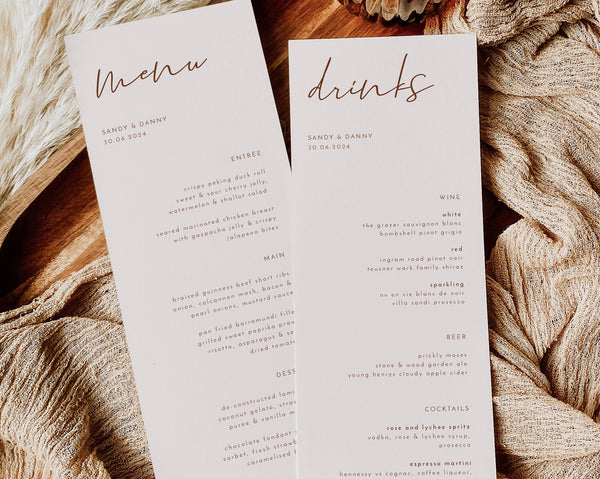 menu
SANDY & DANNY
30.06.2024
ENTRÉE
crispy peking duck roll,
sweet & sour cherry jelly,
watermelon & shallot salad
seared marinated chicken breast
with gazpacho jelly & crispy
jalapeno bites
MAIN
braised guinness beef short ribs
onion, colcannon mash, bacon &
pearl onions, mustard sauce
pan fried barramundi fill
grilled sweet paprika praw
risotto, asparagus & se
dried tomat
DESS
de-constructed lam
coconut gelato, straw
puree & vanilla m
chocolate fondant
sorbet, fresh strawb
caramelised b
drinks
SANDY & DANNY
30.06.2024
WINE
white
the grazer sauvignon blanc
bombshell pinot grigio
red
ingram road pinot noir
teusner wark family shiraz
sparkling
nv en vie blanc de noir
villa sandi prosecco
BEER
prickly moses
stone & wood garden ale
young henrys cloudy apple cider
COCKTAILS
rose and lychee spritz
vodka, rose & lychee syrup,
prosecco
espresso martini
hennessy vs cognac, coffee liqueur,